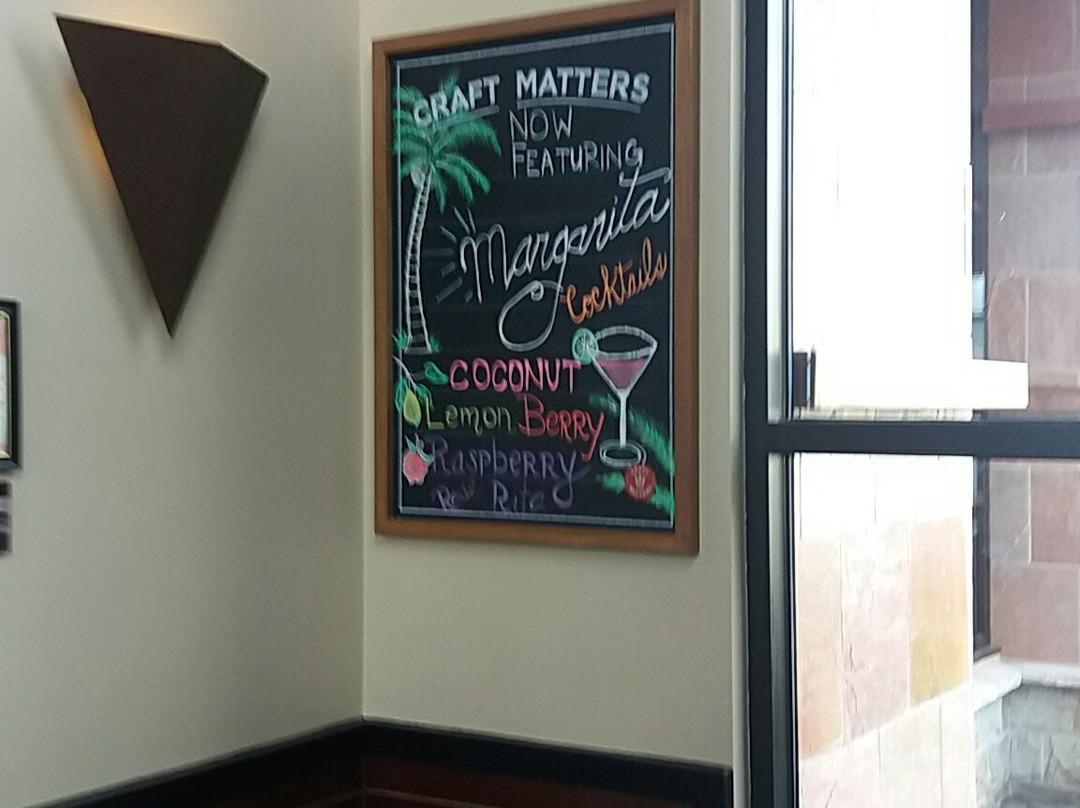 CRAFT MATTERS
NOW
FEATURING
Margarita
Cocktails
COCONUT
Lemon Berry
Raspberry
Rita